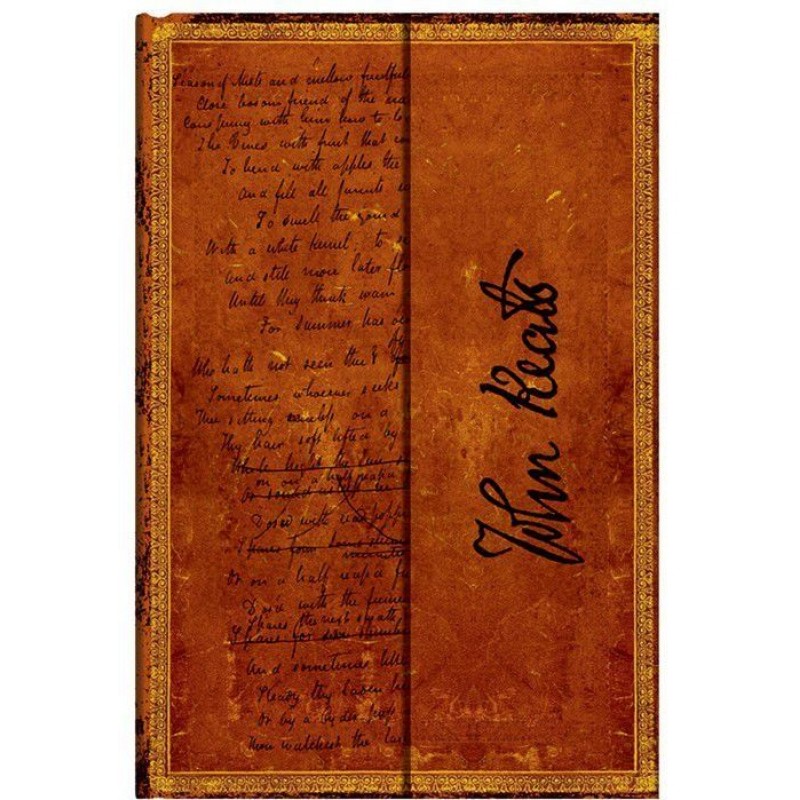 Season of Mists and mellow fruitful
Close bosom friend of the ma
Conspiring with him how to lo
The Vines with fruit that
To bend with apples the
And fill all furuits
To swell the gourd
With a white kernel; to
And still more later flo
Until they think warm
For Summer has
Who hath not seen thee?
Sometimes whoever seeks
Thee sitting careless on a
Thy hair soft lifted by
While bright the Sun s
on on a half reap'd
Or sound asleep in
Dosed with read poppi
Spares from some
minutes
Or on a half reap'd fu
Dos'd with the fume
Spares the next swath
Spares for some slumbe
And sometimes like
Steady thy laden he
Or by a Cyder press
Thou watchest the las
John Keats